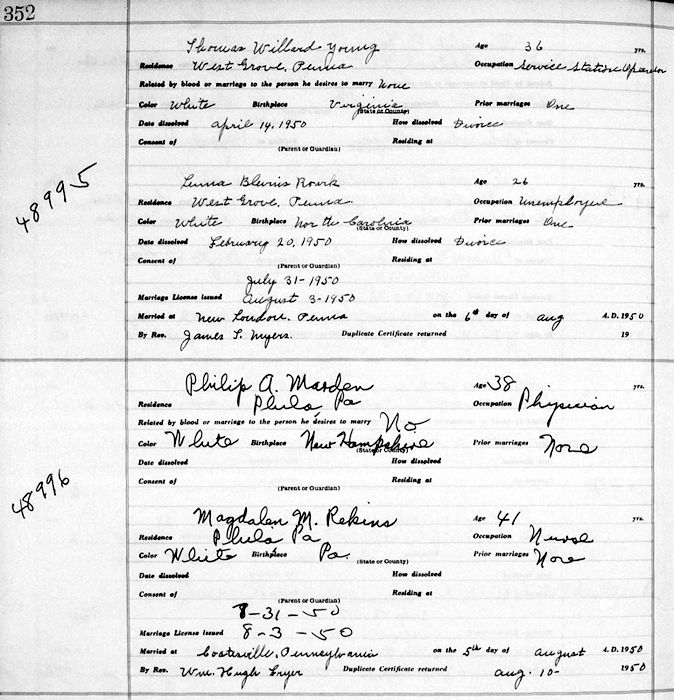 352
Thomas Willard Young Age 36 yrs.
Residence West Grove, Penna Occupation Service Station Operator
Related by blood or marriage to the person he desires to marry None
Color White Birthplace Virginia Prior marriages One
(State or County)
Date dissolved April 14, 1950 How dissolved Divorce
Consent of Residing at
(Parent or Guardian)
48995
Lenna Blevins Roark Age 26 yrs.
Residence West Grove, Penna. Occupation Unemployed
Color White Birthplace North Carolina Prior marriages One
(State or County)
Date dissolved February 20, 1950 How dissolved Divorce
Consent of Residing at
(Parent or Guardian)
July 31-1950
Marriage License issued August 3-1950
Married at New London, Penna on the 6th day of Aug A.D. 1950
By Rev. James S. Myers. Duplicate Certificate returned 19
Philip A. Marden Age 38 yrs.
Residence Phila Pa Occupation Physician
Related by blood or marriage to the person he desires to marry No
Color White Birthplace New Hampshire Prior marriages None
(State or County)
Date dissolved How dissolved
Consent of Residing at
(Parent or Guardian)
48996
Magdalen M. Rekins Age 41 yrs.
Residence Phila Pa Occupation Nurse
Color White Birthplace Pa. Prior marriages None
(State or County)
Date dissolved How dissolved
Consent of Residing at
(Parent or Guardian)
7-31-50
Marriage License issued 8-3-50
Married at Coatesville, Pennsylvania on the 5th day of August A.D. 1950
By Rev. Wm. Hugh Fryer Duplicate Certificate returned Aug. 10- 1950